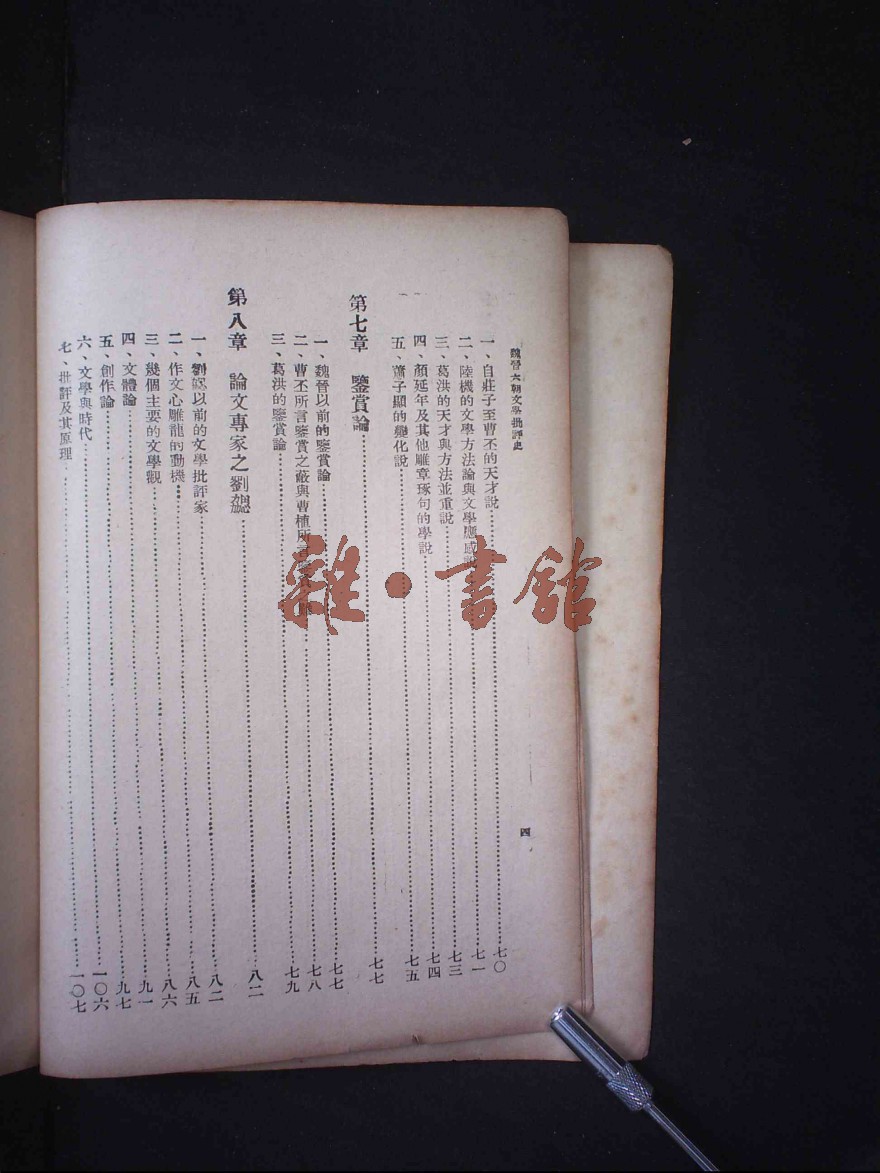 魏晉六朝文學批評史
四
一、自莊子至曹丕的天才說……七〇
二、陸機的文學方法論與文學應感……七一
三、葛洪的天才與方法並重說……七三
四、顏延年及其他雕章琢句的學說……七四
五、蕭子顯的變化說……七五
第七章 鑒賞論……七七
一、魏晉以前的鑒賞論……七七
二、曹丕所言鑒賞之蔽與曹植所言……七八
三、葛洪的鑒賞論……七九
第八章 論文專家之劉勰……八二
一、劉勰以前的文學批評家……八二
二、作文心雕龍的動機……八五
三、幾個主要的文學觀……八六
四、文體論……九一
五、創作論……九七
六、文學與時代……一〇六
七、批評及其原理……一〇七
雜·書館